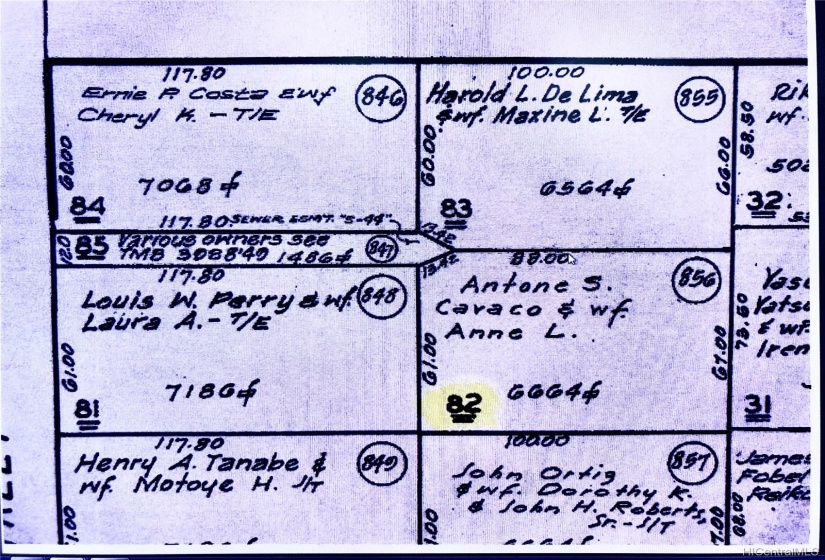 117.80
Ernie P. Costa & wf
Cheryl K. - T/E
846
60.00
7068 ⌗
84
117.80 SEWER ESMT. "S-44"
12.0
85
Various owners see
TMB 3988'49 1486 ⌗
847
100.00
Harold L. De Lima
& wf. Maxine L. T/E
855
60.00
66.00
6564 ⌗
83
13.42
13.42
117.80
Louis W. Perry & wf.
Laura A. - T/E
848
61.00
7186 ⌗
81
88.00
Antone S.
Cavaco & wf.
Anne L.
856
61.00
67.00
82
6664 ⌗
117.80
Henry A. Tanabe &
wf. Motoye H. J/T
849
1.00
100.00
John Ortiz
& wf. Dorothy K.
& John H. Roberts,
Sr. - J/T
857
1.00
7.00
58.50
Rik
wf.
502
32
73.50
Yas
Yats
& wf
Iren
31
James
Reiko
68.00
HiCentralMLS